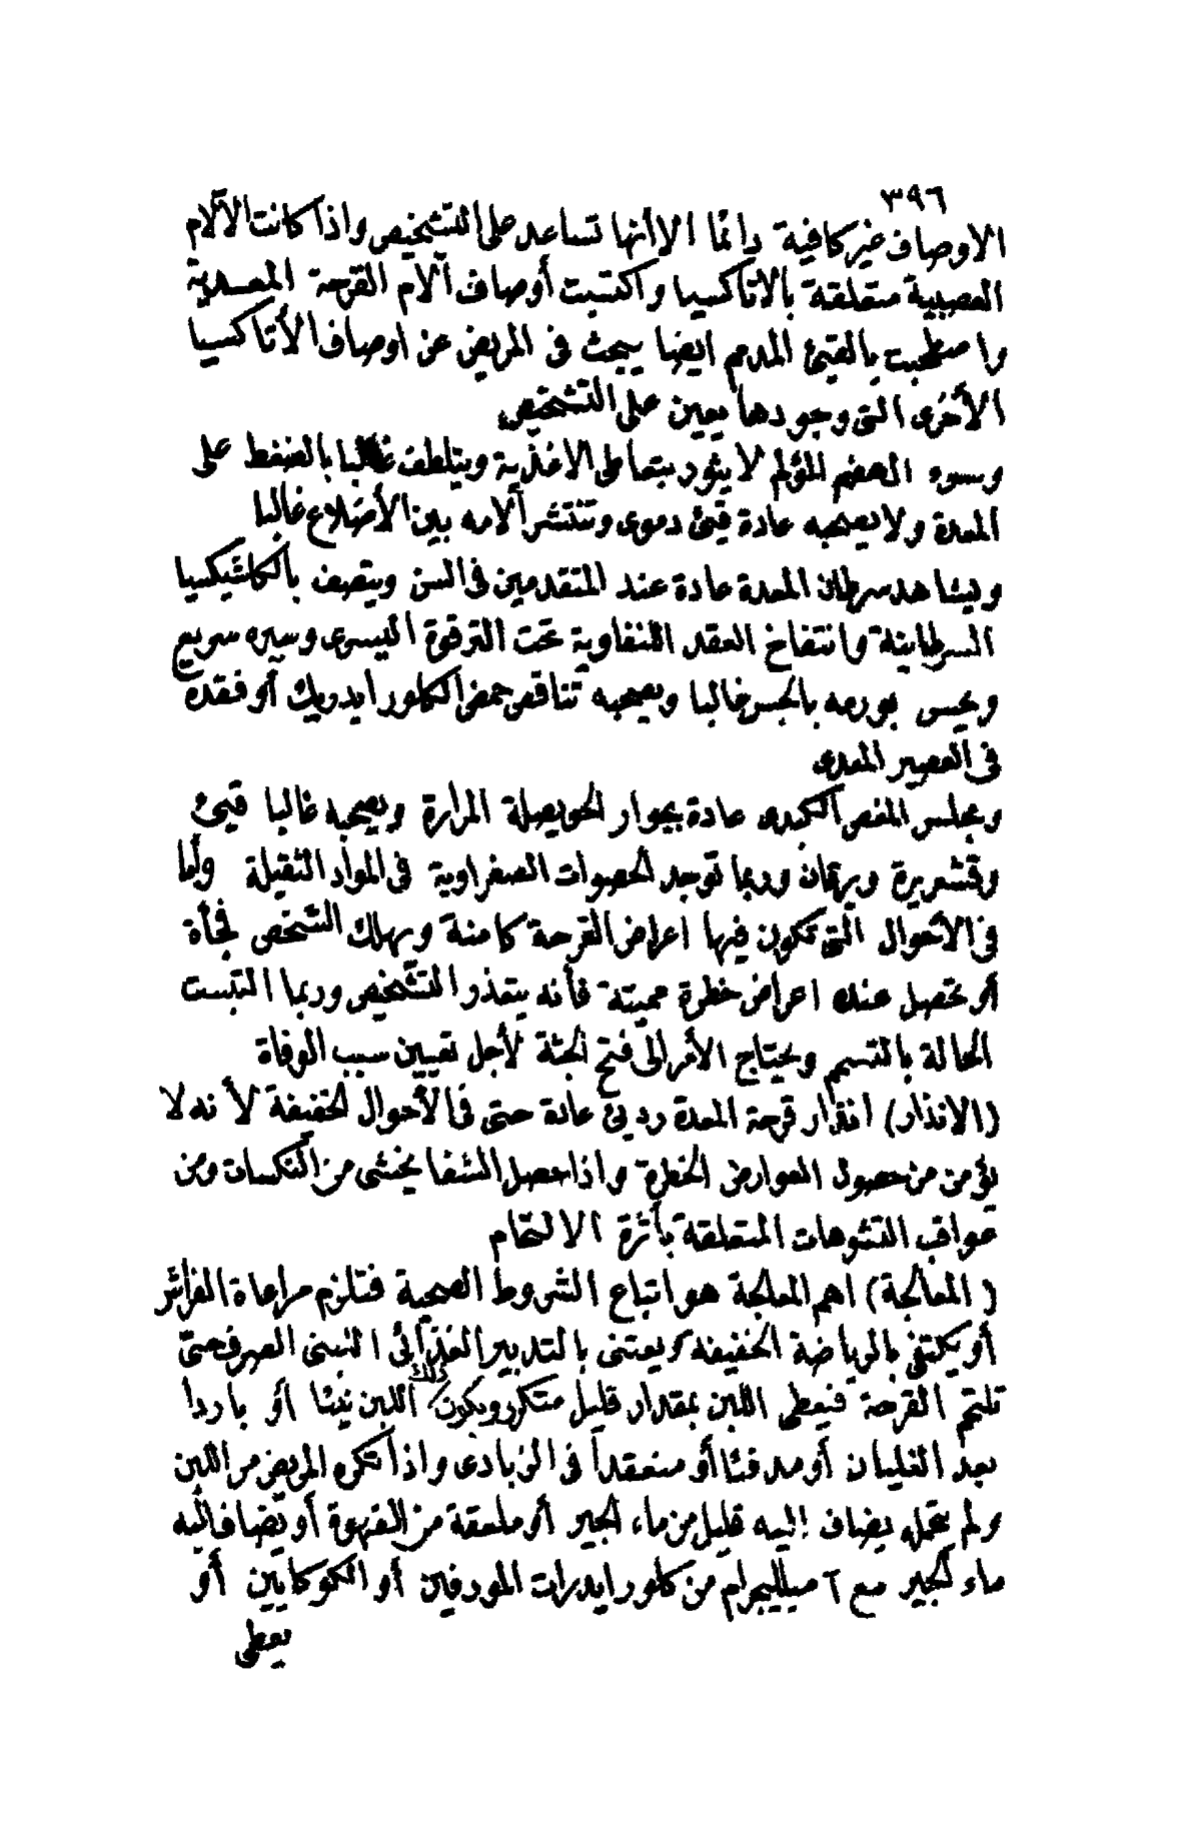 ٣٩٦
الاوصاف غير كافية دائما الا أنها تساعد على التشخيص واذا كانت الآلام
العصبية متعلقة بالاتاكسيا واكتسبت أوصاف آلام القرحة المعدية
واصطحبت بالقيئ المدمم ايضا يبحث فى المريض عن اوصاف الأتاكسيا
الأخرى التى وجودها يعين على التشخيص
وسوء الهضم المؤلم لا يثور بتعاطى الاغذية ويتلطف غالبا بالضغط على
المعدة ولا يصحبه عادة قيئ دموى وتنتشر آلامه بين الأضلاع غالبا
ويشاهد سرطان المعدة عادة عند المتقدمين فى السن ويتصف بالكاشيكسيا
السرطانية وانتفاخ العقد اللنفاوية تحت الترقوة اليسرى وسيره سريع
ويحس بورمه بالجس غالبا ويصحبه تناقص حمض الكلور ايدريك أو فقده
فى العصير المعدى
ومجلس المغص الكبدى عادة بجوار الحويصلة المرارة ويصحبه غالبا قيئ
وقشعريرة ويرقان وربما توجد الحصوات الصفراوية فى المواد الثفيلة وأما
فى الأحوال التى تكون فيها اعراض القرحة كامنة ويهلك الشخص فجأة
أو تحصل عنده اعراض خطرة مميتة فأنه يتعذر التشخيص وربما التبست
الحالة بالتسمم ويحتاج الأمر الى فتح الجثة لأجل تعيين سبب الوفاة
(الانذار) انذار قرحة المعدة ردئ عادة حتى فى الأحوال الخفيفة لأنه لا
يؤمن من حصول العوارض الخطرة واذا حصل الشفا يخشى من النكسات ومن
عواقب التشوهات المتعلقة بأثرة الالتحام
(المعالجة) اهم المعالجة هو اتباع الشروط الصحية فتلزم مراعاة الفرائش
أو يكتفى بالرياضة الخفيفة ويعتنى بالتدبير الغذائى اللبنى الصرف حتى
تلتحم القرحة فيعطى اللبن بمقدار قليل متكرر ويكون ذلك اللبن نيئا أو باردا
بعد الغليان أو مدفئا أو منعقداً فى الزبادى واذا تكره المريض من اللبن
ولم يتحمله يضاف اليه قليل من ماء الجير أو ملعقة من القهوة أو يضاف اليه
ماء الجير مع ٦ ميلليجرام من كلور ايدرات المورفين أو الكوكايين أو
يعطى